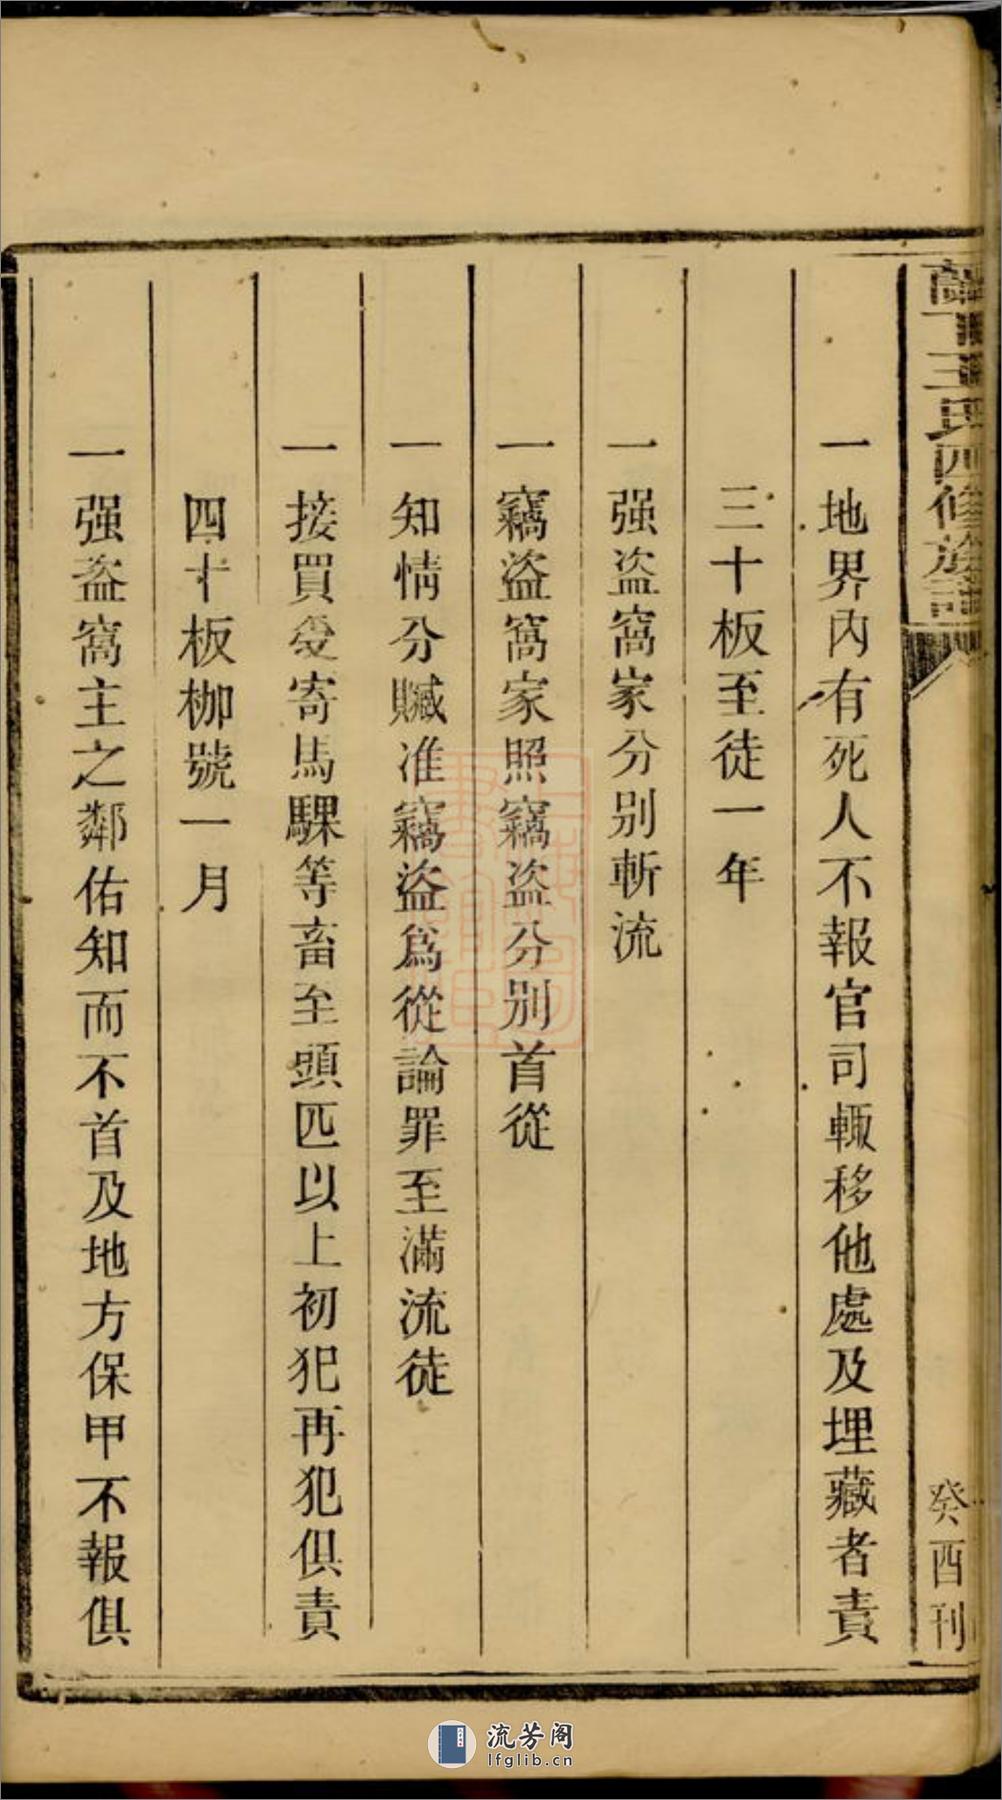 下王氏四修族譜
癸酉刊
一地界內有死人不報官司輒移他處及埋藏者責
三十板至徒一年
一强盜窩家分别斬流
一竊盜窩家照竊盜分别首從
一知情分贓准竊盜爲從論罪至滿流徒
一接買受寄馬騾等畜至頭匹以上初犯再犯俱責
四十板枷號一月
一强盜窩主之鄰佑知而不首及地方保甲不報俱
流芳阁
lfglib.cn